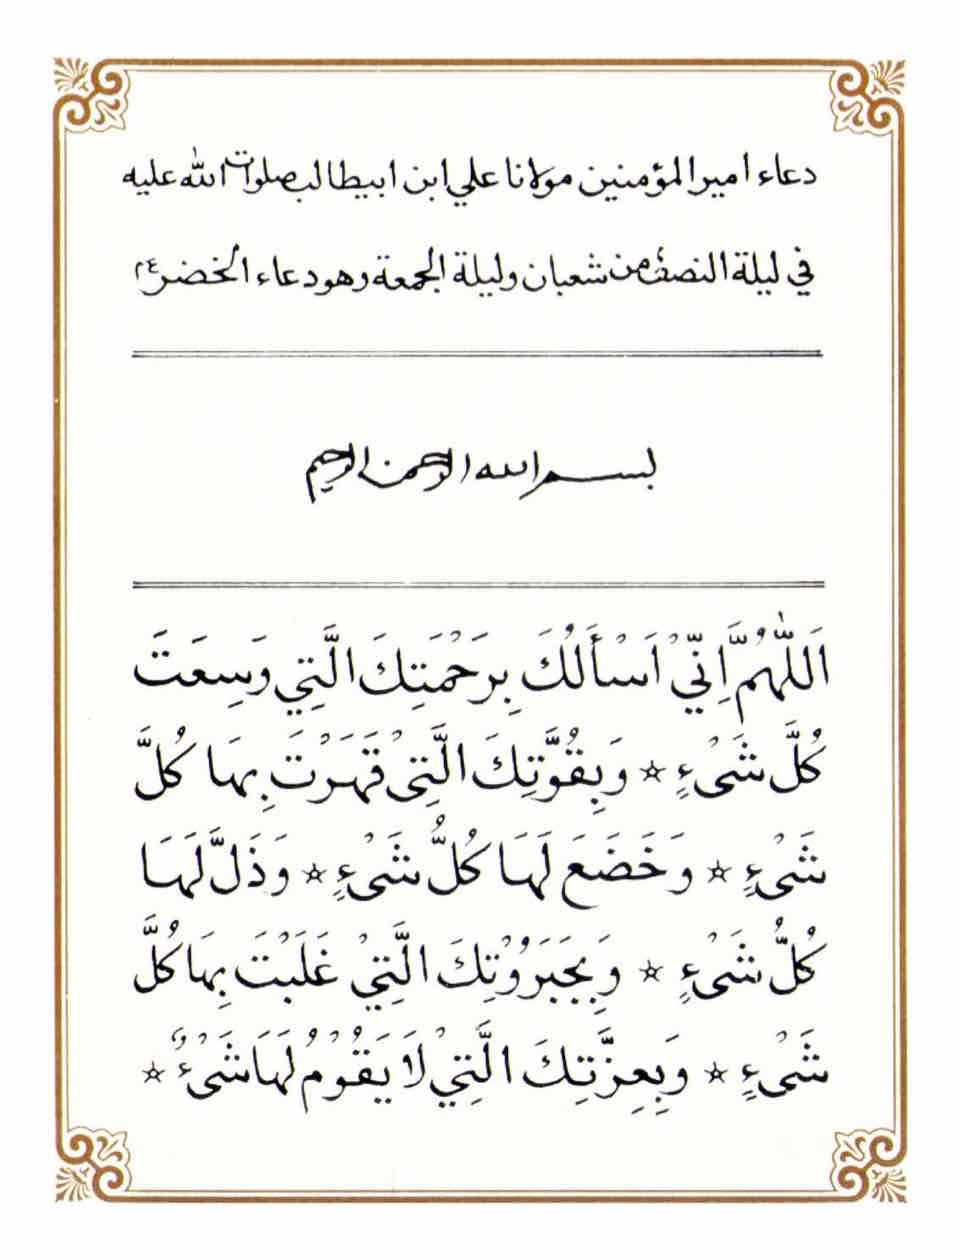 دعاء امير المؤمنين مولانا علي ابن ابيطالب صلوات الله عليه
في ليلة النصف من شعبان وليلة الجمعة وهو دعاء الخضر ع م
بسم الله الرحمن الرحيم
اَللّٰهُمَّ اِنِّيْ اَسْأَلُكَ بِرَحْمَتِكَ الَّتِي وَسِعَتَ
كُلَّ شَىْءٍ ☆ وَبِقُوَّتِكَ الَّتِىْ قَهَرْتَ بِهَا كُلَّ
شَىْءٍ ☆ وَخَضَعَ لَهَا كُلُّ شَىْءٍ ☆ وَذَلَّ لَهَا
كُلُّ شَىْءٍ ☆ وَبِجَبَرُوْتِكَ الَّتِيْ غَلَبْتَ بِهَا كُلَّ
شَىْءٍ ☆ وَبِعِزَّتِكَ الَّتِيْ لَا يَقُوْمُ لَهَا شَىْءٌ ☆